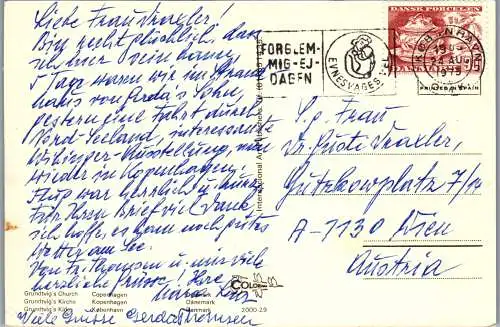 Liebe Frau Traxler!
Bin recht glücklich, daß
ich hier sein kann,
5 Tage waren wir im Strand-
haus von Gerda's Sohn,
gestern Fahrt durch
Nord-Seeland, interessante
Wikinger-Ausstellung, nun
wieder in Kopenhagen
Flug war herrlich, auch
für Ihren Brief viel Dank
ich hoffe, es kam noch gutes
Wetter am See.
Von Fr. Thomsen u. mir viele
herzliche Grüße! Ihre
Viele Grüsse Gerda Thomsen
Grundtvig's Church Copenhagen Denmark
Grundtvig's Kirche Kopenhagen Dänemark
Grundtvig's Kirke København Danmark
COLOR
2000-29
FORGLEM-
MIG-EJ-
DAGEN
EVNESVAGES VEL
KØBENHAVN
24 AUG
1975
DANSK PORCELÆN
DANMARK
PRINTED IN SPAIN
S. g. Frau
Dr. Gusti Traxler
Gutzkowplatz 7/14
A-1130 Wien
Austria